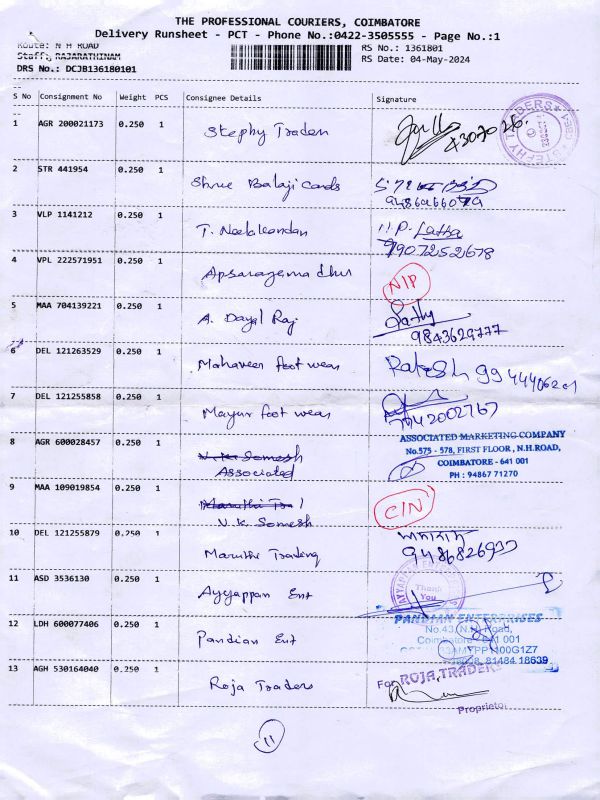 THE PROFESSIONAL COURIERS, COIMBATORE
Delivery Runsheet - PCT - Phone No.:0422-3505555 - Page No.:1
Route: N H ROAD
RS No.: 1361801
Staff: RAJARATHINAM
RS Date: 04-May-2024
DRS No.: DCJB136180101
S No Consignment No Weight PCS Consignee Details Signature
1 AGR 200021173 0.250 1 Stephy Traders
2 STR 441954 0.250 1 Shree Balaji Cards
9486266079
3 VLP 1141212 0.250 1 T. Neelakandan P. Latha
9907252678
4 VPL 222571951 0.250 1 NIP
5 MAA 704139221 0.250 1 A. Dayal Raj Sathy
9843629777
6 DEL 121263529 0.250 1 Mahaveer foot wear Rakesh 9944406201
7 DEL 121255858 0.250 1 Mayur foot wear
8 AGR 600028457 0.250 1 N.K. Somesh
Associated
ASSOCIATED MARKETING COMPANY
No.575 - 578, FIRST FLOOR, N.H.ROAD,
COIMBATORE - 641 001
PH : 94867 71270
9 MAA 109019854 0.250 1 Maruthi Tra
N.K. Somesh
C/N
10 DEL 121255879 0.250 1 Maruthi Trading
9486826937
11 ASD 3536130 0.250 1 Ayyappan Ent
Thank
You
12 LDH 600077406 0.250 1 Pandian Ent
PANDIAN ENTERPRISES
No.43, N.H. Road,
Coimbatore - 641 001
81484 18639
13 AGH 530164040 0.250 1 Roja Traders
For ROJA TRADERS
Proprietor
11